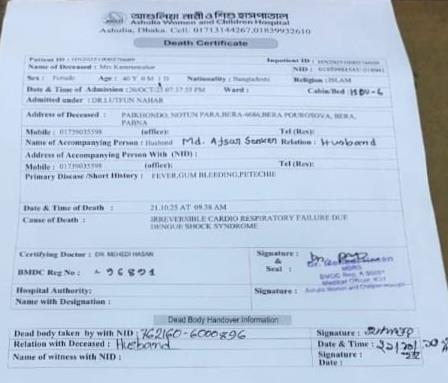 আশুলিয়া নারী ও শিশু হাসপাতাল
Ashulia Women and Children Hospital
Ashulia, Dhaka. Cell: 01713144267,01839932610
Death Certificate
Patient ID :
Inpatient ID :
Name of Deceased : Mrs
NID :
Sex : Female Age : 40 Y 0 M 1 D Nationality : Bangladeshi Religion : ISLAM
Date & Time of Admission : 20/OCT/25 07:37:55 PM Ward : Cabin/Bed : HDU-6
Admitted under : DR.LUTFUN NAHAR
Address of Deceased : PAIKHONDO, NOTUN PARA,BERA-6686,BERA POUROSOVA, BERA,
PABNA
Mobile : 01739035598 (office): Tel (Res):
Name of Accompanying Person : Husband Md. Relation : Husband
Address of Accompanying Person With (NID) :
Mobile : 01739035598 (office): Tel (Res):
Primary Disease /Short History : FEVER,GUM BLEEDING,PETECHIE
Date & Time of Death : 21.10.25 AT 09.38 AM
Cause of Death : IRREVERSIBLE CARDIO RESPIRATORY FAILURE DUE
DENGUE SHOCK SYNDROME
Certifying Doctor : DR. MEHEDI HASAN
Signature :
&
Seal :
BMDC Reg No : A 96891
Hospital Authority:
Name with Designation :
Signature :
Ashulia Women and Children Hospital
Dead Body Handover Information
Dead body taken by with NID : 762160-6000896 Signature :
Relation with Deceased : Husband Date & Time :
Name of witness with NID : Signature :
Date :